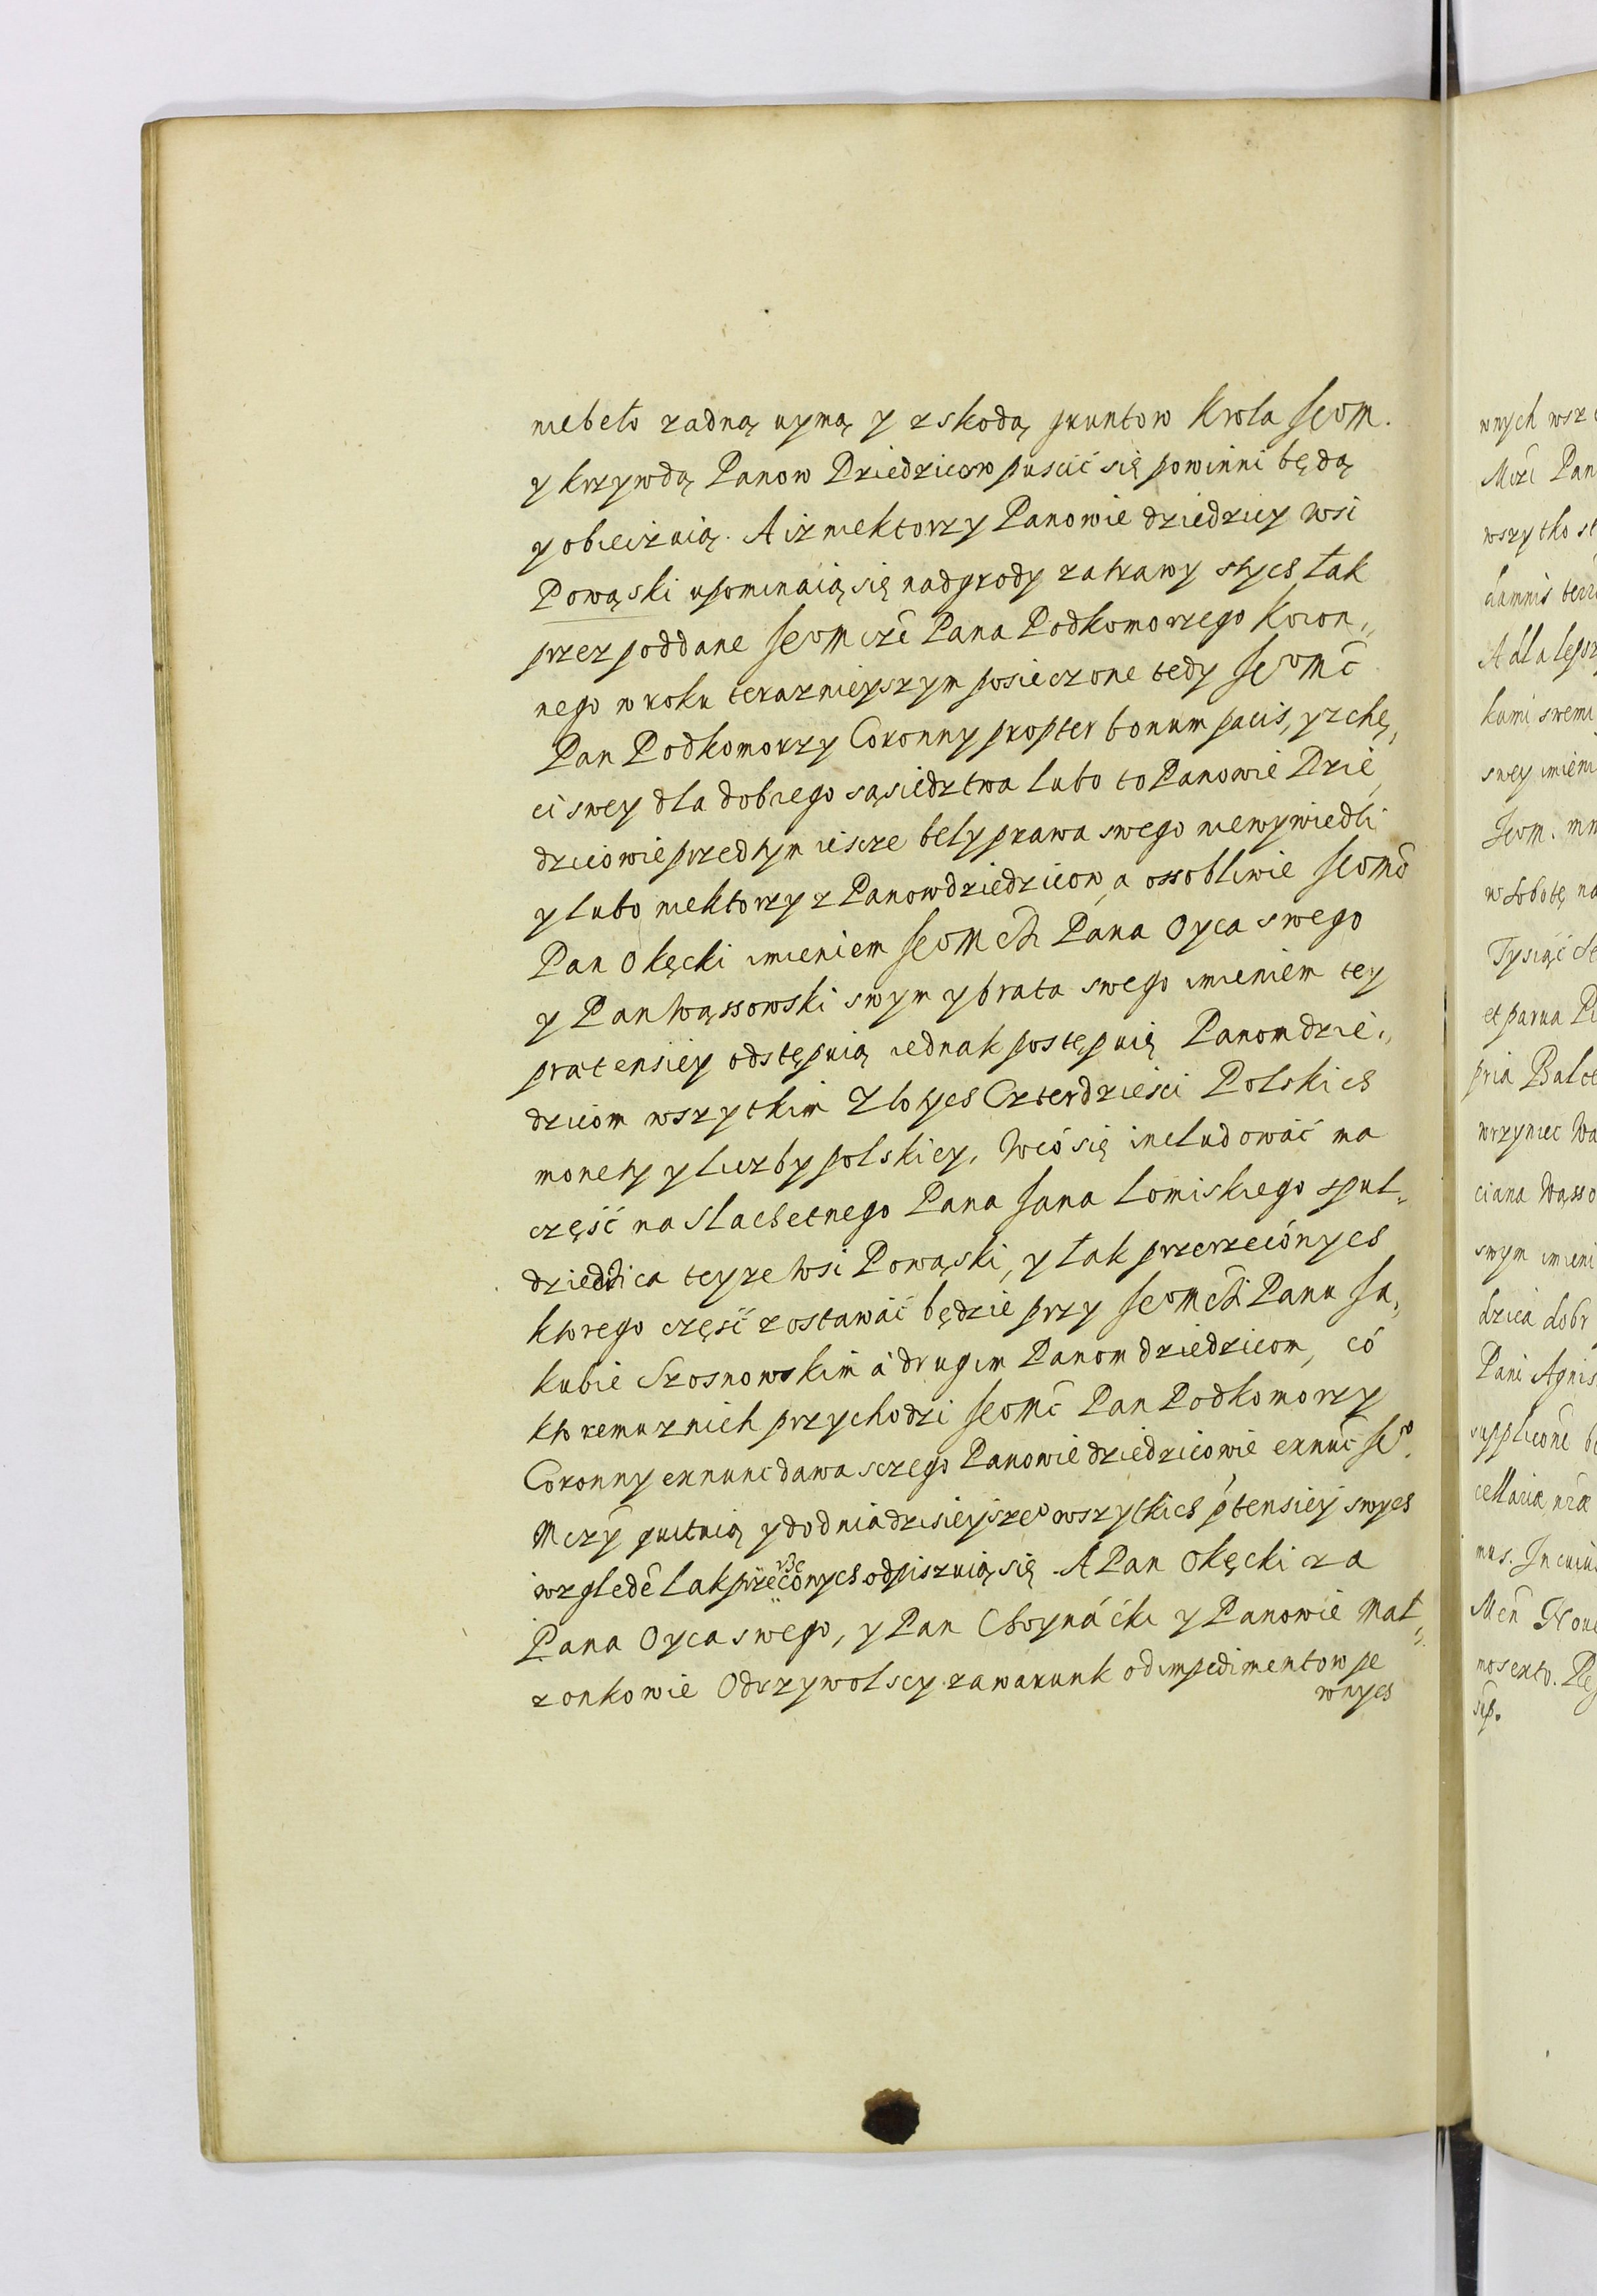 niebeło zadną uymą y z skodą gruntow Krola Jeom.
y krzywdą Panow Dziedzicow puscić się powinni będą
y obiecznią. A iz niektorzy Panowie dziedzicy wsi
Powąski upominaią się nadgrody za trawy s tych łak
przez poddane Jeomcze Pana Podkomorzego Koron„
nego w roku terazniejszym posieczone tedy Jeomc̃
Pan Podkomorzy Coronny propter bonum pacis, y z chę„
ci swey dla dobrego sąsiedztwa lubo to Panowie Dzie„
dzicowie przedtym iescze bely prawa swego niewywiedli
y lubo niektorzy z Panow dziedzicow, a ossobliwie Jeomc̃
Pan Okęcki imieniem Jeomch Pana Oyca swego
y Pan Wąssowski swym y brata swego imieniem tey
prætensiey odstępuią iednak postępuią Panom dzie„
dzicom wszytkim Złotych Czterdziesci Polskich
monety y liczby polskiey, W có się includować ma
część na Slachetnego Pana Jana Lomiskiego spul„
dziedzica teyze Wsi Powąski, y łak przerzeczónych
ktorego część zostawać będzie przy Jeomch Panu Ja„
kubie Szosnowskim á drugim Panom dziedzicom, có
ktoremu z nich przychodzi Jeomc̃ Pan Podkomorzy
Coronny exnunc dawa s czego Panowie dziedzicowie exnũc Je°.
Mczy quituią y do dnia dzisieyszeº wszytkich p̃tensiey swych
względẽ łak przerzeconych odpiszuią się. A Pan Okęcki za
Pana Oyca swego, y Pan Choynácki y Panowie Mał„
zonkowie Odrzywolscy za warunk od impedimentow pe
wnych
wnych wsz
Mczi Pan
wszytko st
damnis terr
A dla lepsz
kami swemi
swey imieni
Jeom.
w Sobotę na
Tysiąć
et parua
pria Balce
wrzyniec Wą
ciana Wąsso
swym imieni
dzica dobr
Pani Agnis
supplicone
cellariæ nræ
mus. In cuius
Men Nove
mo sexto.
sup.